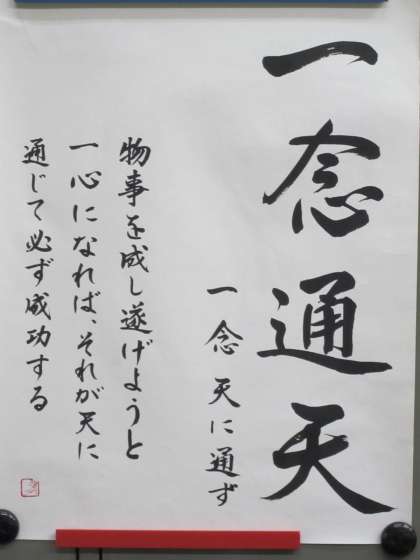 一念通天
一念天に通ず
物事を成し遂げようと
一心になれば、それが天に
通じて必ず成功する